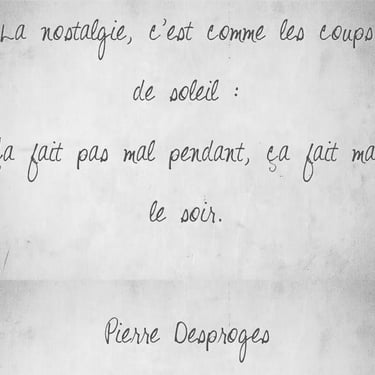 La nostalgie, c'est comme les coups
de soleil :
ça fait pas mal pendant, ça fait ma
le soir.
Pierre Desproges